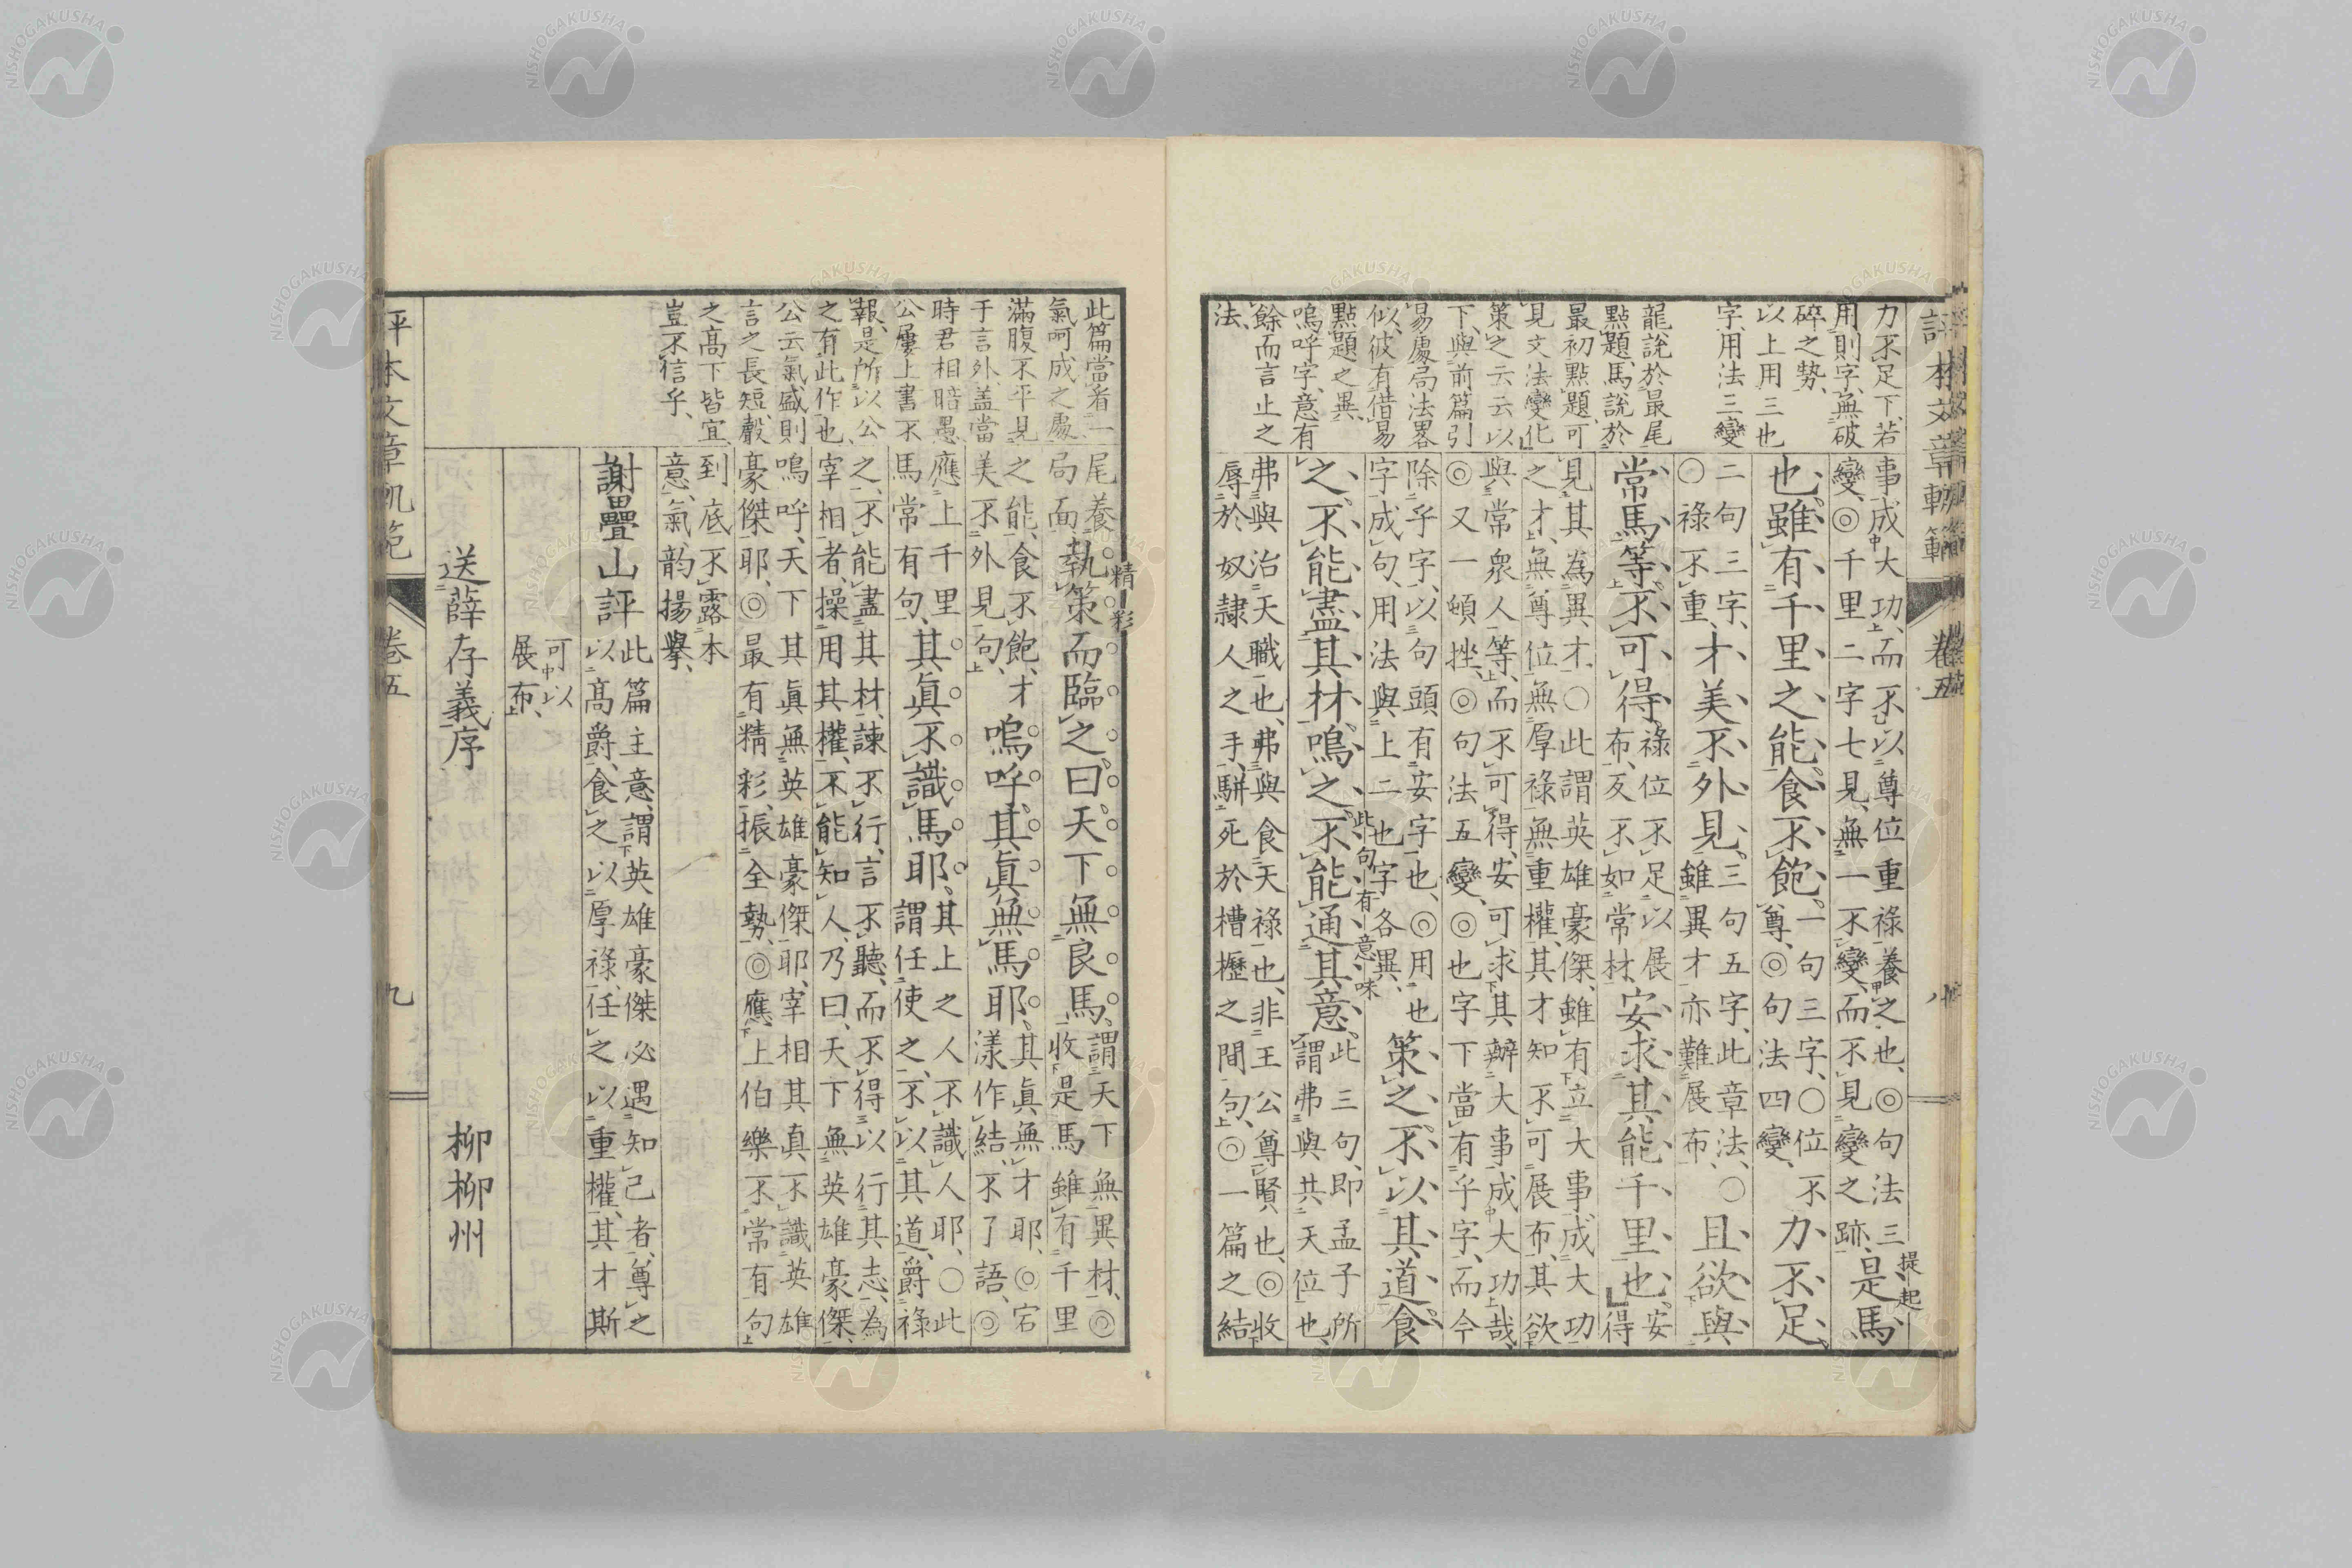 評本文章軌範
卷五
八
力不足下、若
用則字、無破
碎之勢、
以上用三也
字、用法三變
龍說於最尾
點題、馬說於
最初點題、可
見文法變化
策之云云以
下、與前篇引
易處局法畧
似、彼有借易
點題之異、
嗚呼字、意有
餘而言止之
法、
事成大功、而不以尊位重祿養之也、◎句法三
變、◎千里二字七見、無一不變、而不見變之跡、
提起
是馬
也、雖有千里之能、食不飽、
一句三字、○位不
尊、◎句法四變、
力不足、
二句三字、
○祿不重、
才美不外見、
三句五字、此章法、○
雖異才亦難展布、
且欲與
常馬等、不可得、
祿位不足以展
布、反不如常材、
安求其能千里也、
安
得
見其為異才、○此謂英雄豪傑、雖有立大事、成大功
之才、無尊位、無厚祿、無重權、其才知不可展布、其欲
與常衆人等、而不可得、安可求其辦大事、成大功哉、
◎又一頓挫、◎句法五變、◎也字下當有乎字、而今
除乎字、以句頭有安字也、◎用也
字成句、用法與上二也字各異、
策之、不以其道、食
之、不能盡其材、鳴之、不能通其意、
此句有意味
此三句、即孟子所
謂弗與共天位也、
弗與治天職也、弗與食天祿也、非王公尊賢也、◎收
辱於奴隷人之手、駢死於槽櫪之間句、◎一篇之結
此篇當看一
氣呵成之處
滿腹不平見
于言外、蓋當
時君相暗愚、
公屢上書不
報、是所以公
之有此作也、
公云氣盛則
言之長短聲
之高下皆宜
豈不信乎、
尾養
局面
執策而臨之、曰天下無良馬、
精彩
謂天下無異材、◎
收是馬雖有千里
之能、食不飽、才
美不外見句、
嗚呼、其眞無馬耶、
其眞無才耶、◎宕
漾作結、不了語、◎
應上千里
馬常有句、
其眞不識馬耶、
其上之人不識人耶、○此
謂任使之、不以其道、爵祿
之、不能盡其材、諫不行、言不聽、而不得以行其志、為
宰相者、操用其權、不能知人、乃曰、天下無英雄豪傑、
嗚呼、天下其眞無英雄豪傑耶、宰相其真不識英雄
豪傑耶、◎最有精彩、振全勢、◎應上伯樂不常有句
到底不露本
意、氣韵揚擧、
謝疊山評
此篇主意、謂英雄豪傑必遇知己者、尊之
以高爵、食之以厚祿、任之以重權、其才斯
可以
展布、
送薛存義序
柳柳州
評本文章軌範
卷五
九